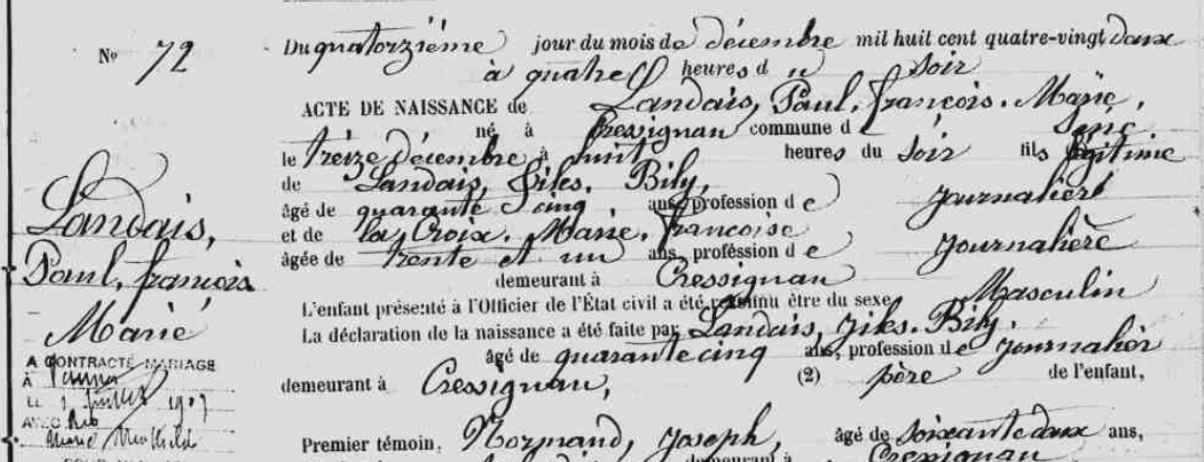 No 72
Du quatorzième jour du mois de décembre mil huit cent quatre-vingt deux
à quatre heures du soir
ACTE DE NAISSANCE de Landais, Paul, françois. Marie,
né à Cressignan commune d
le treize décembre à huit heures du soir fils légitime
de Landais, Giles. Bily,
âgé de quarante cinq ans, profession de journalier
et de la Croix. Marie. françoise
âgée de trente et un ans, profession de journalière
demeurant à Cressignan
L'enfant présenté à l'Officier de l'État civil a été reconnu être du sexe Masculin
La déclaration de la naissance a été faite par Landais, Giles. Bily.
âgé de quarante cinq ans, profession de journalier
demeurant à Cressignan, (2) père de l'enfant,
Premier témoin, Normand, Joseph, âgé de soixante deux ans,
demeurant à Cressignan
Landais,
Paul, françois
Marie
A CONTRACTÉ MARIAGE
À
LE 1 Juillet 190
AVEC Rio
Marie